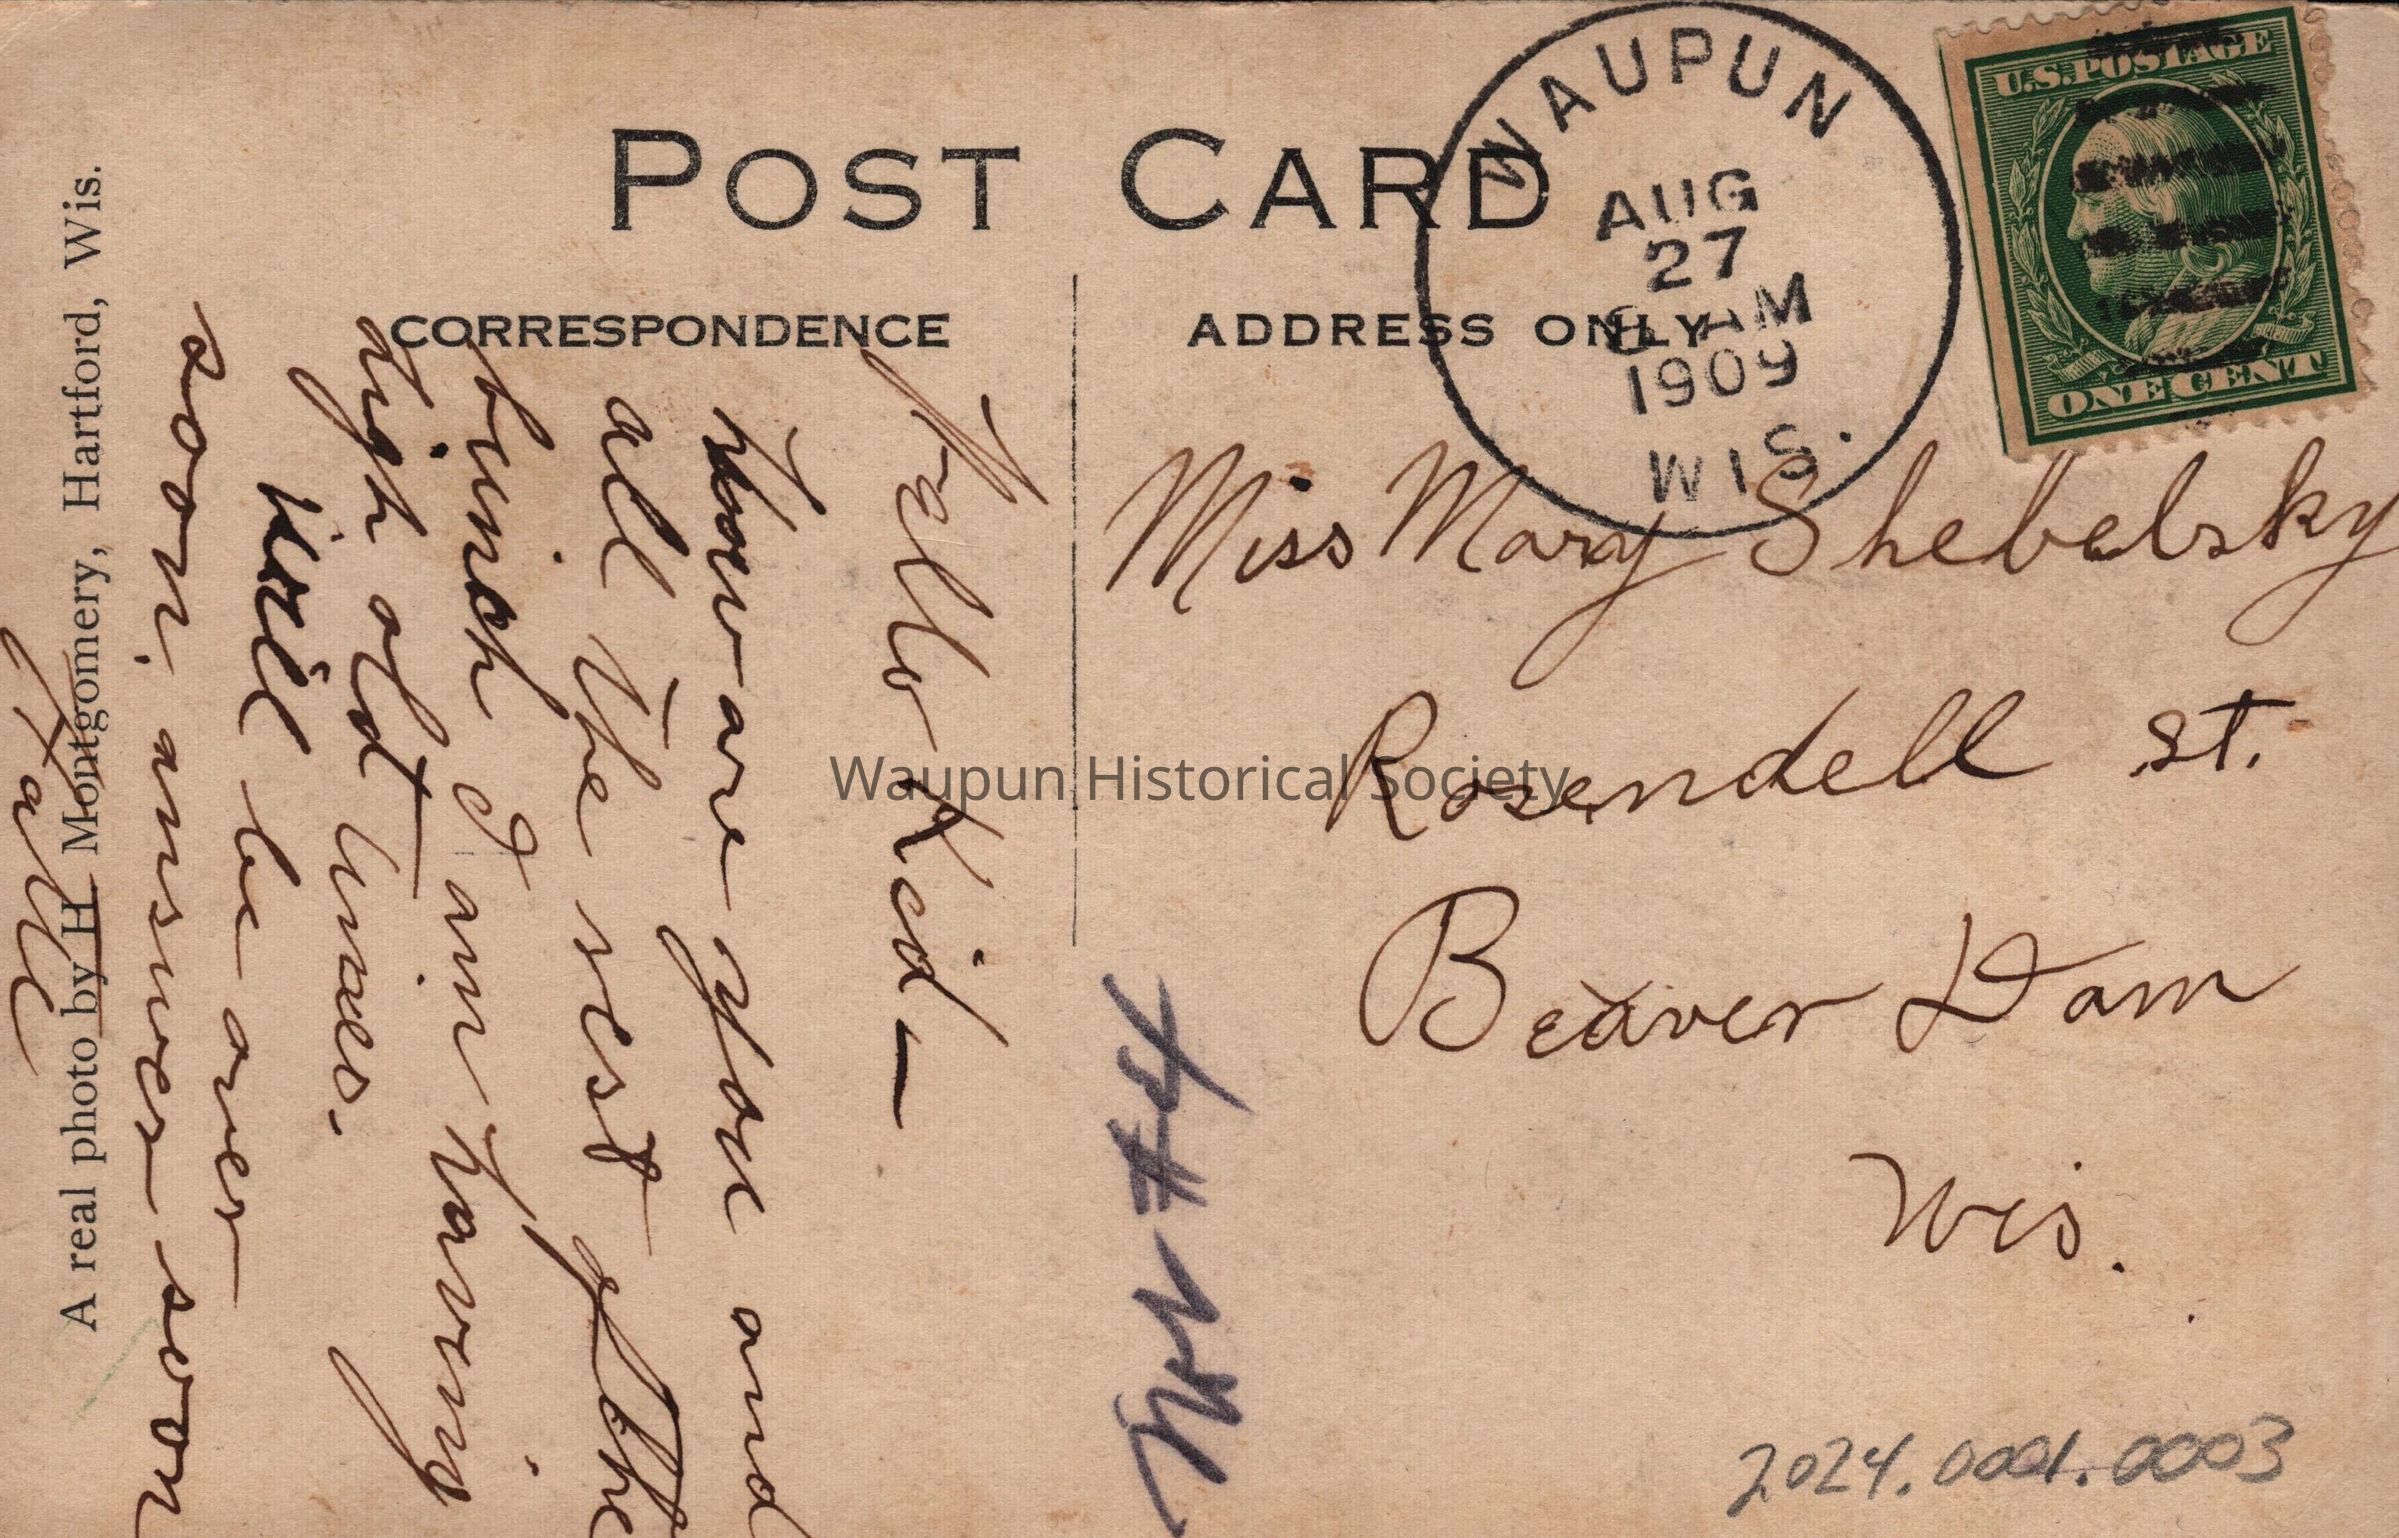 POST CARD
CORRESPONDENCE
ADDRESS ONLY
WAUPUN
AUG
27
AM
1909
WIS.
U.S. POSTAGE
ONE CENT
Hallo Kid —
How are you and
all the rest of the
bunch I am having
high old times.
Will be over
soon. answer soon
Miss Mary Shebelsky
Rosendell st.
Beaver Dam
Wis.
A real photo by H Montgomery, Hartford, Wis.
#4
2024.0001.0003
Waupun Historical Society